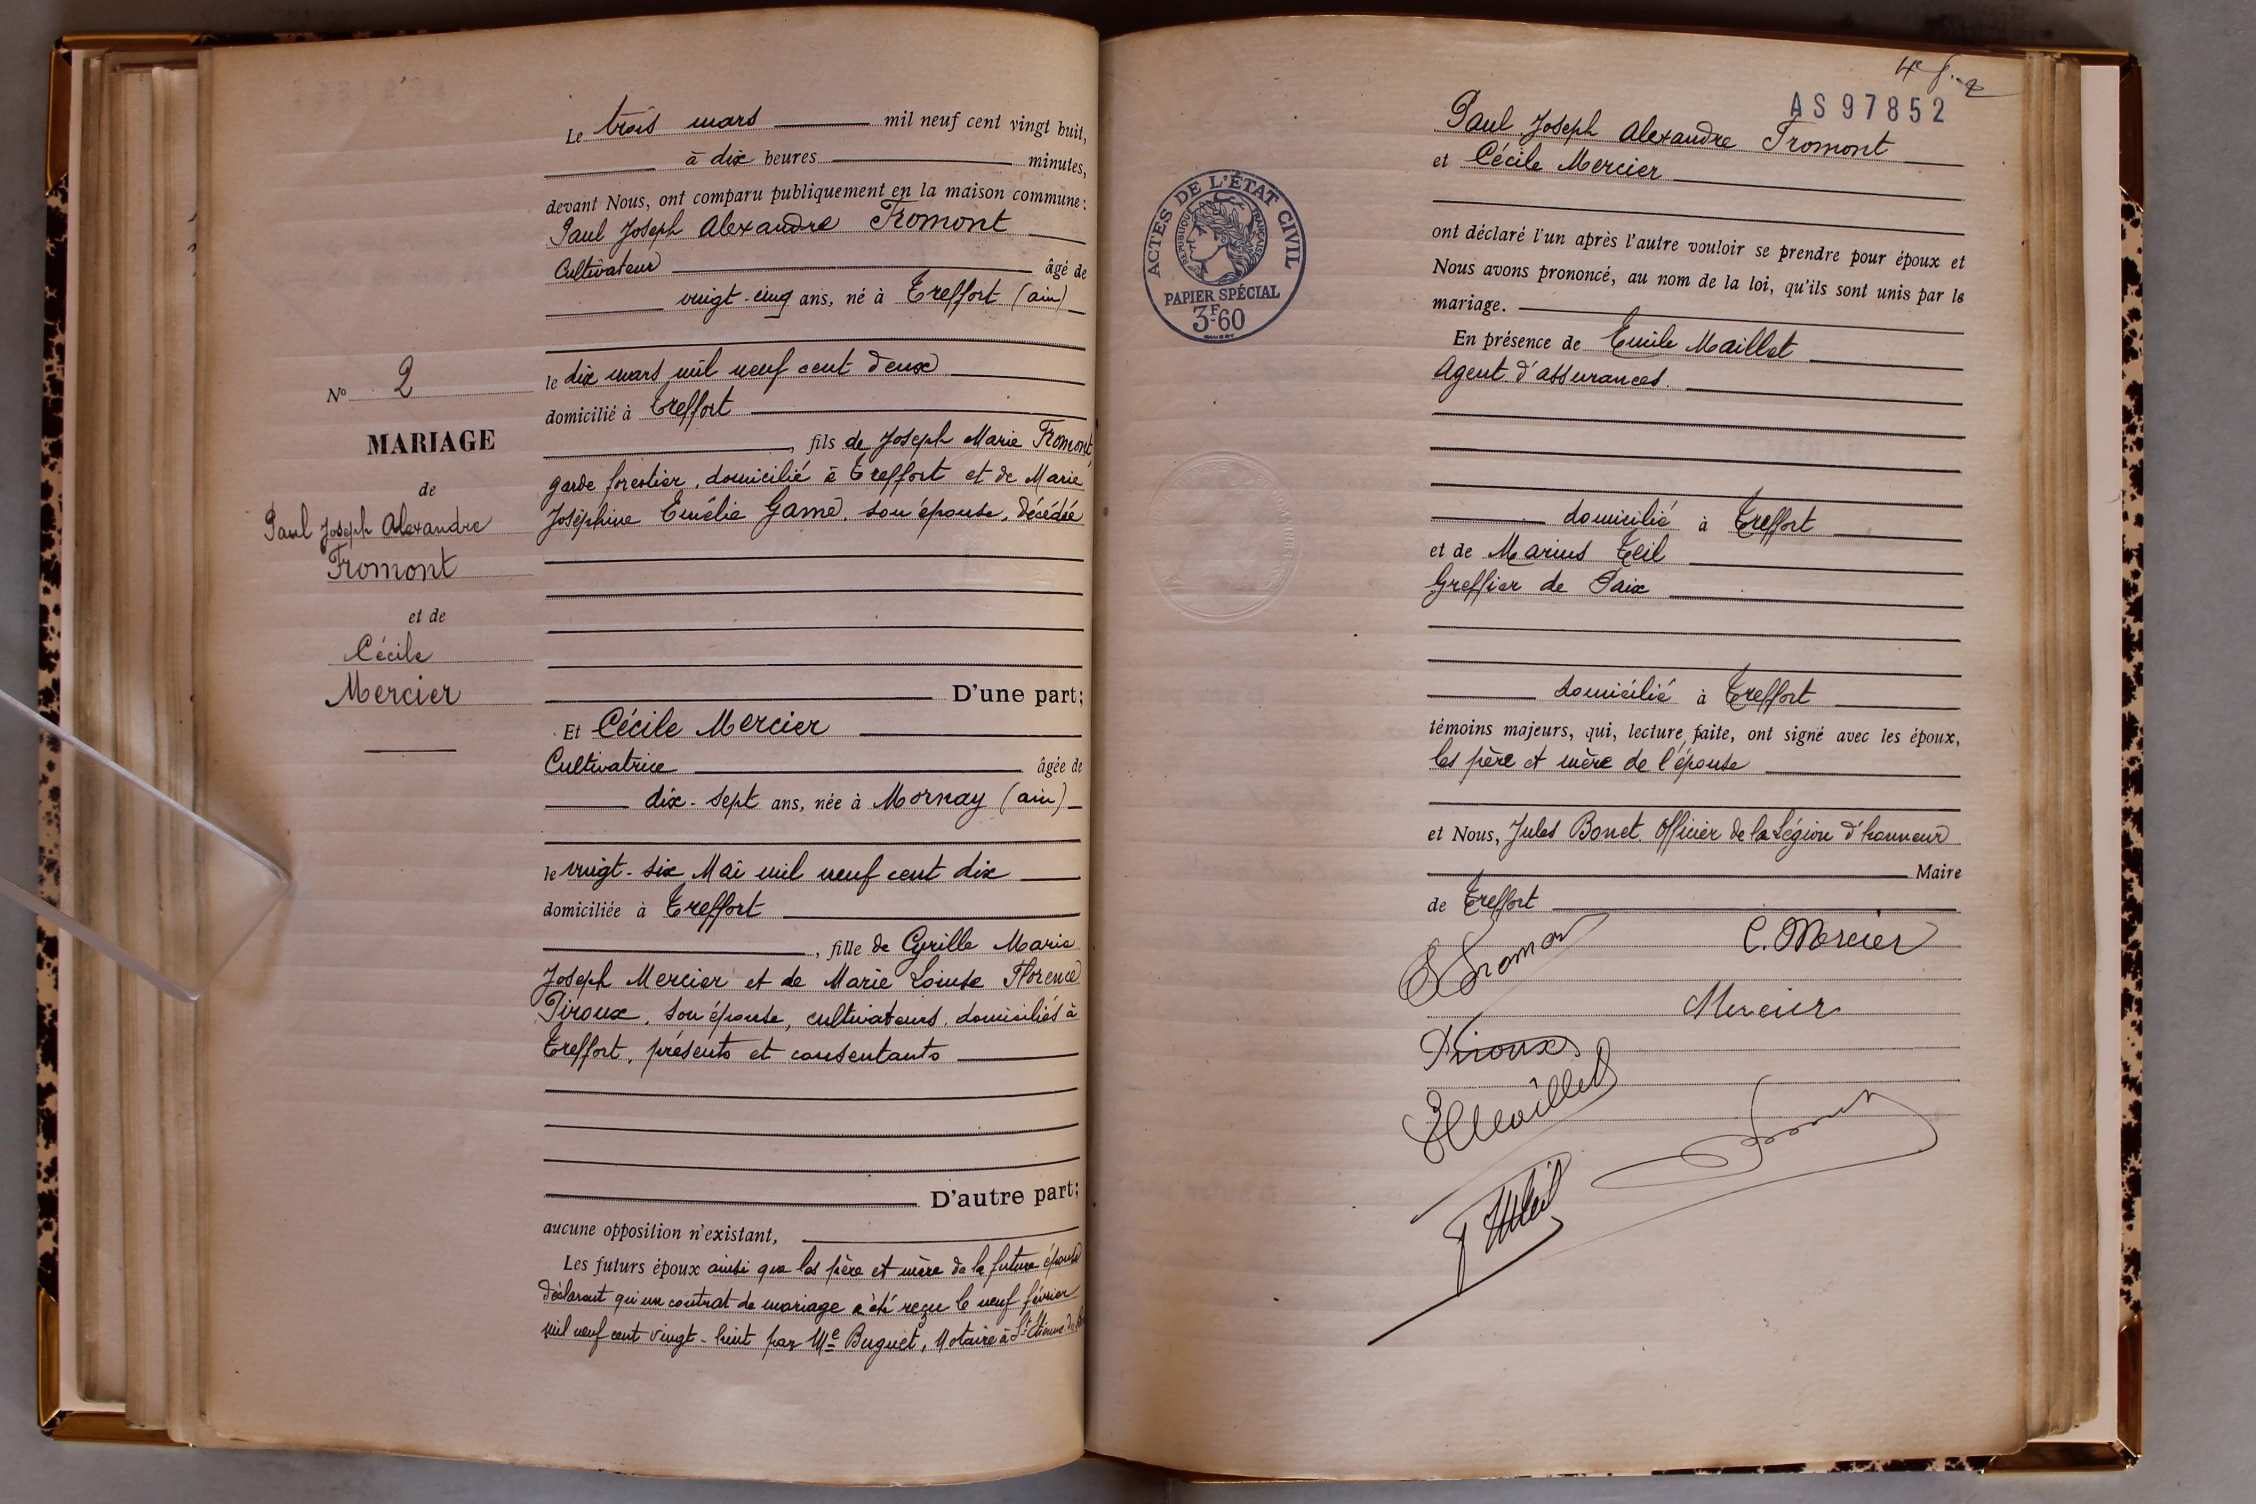 Le trois mars mil neuf cent vingt huit,
à dix heures minutes,
devant Nous, ont comparu publiquement en la maison commune :
Paul Joseph Alexandre Fromont
Cultivateur âgé de
vingt-cinq ans, né à Treffort (ain)
le dix mars mil neuf cent deux
domicilié à Treffort
, fils de Joseph Marie Fromont,
garde forestier, domicilié à Treffort et de Marie
Joséphine Emélie Game, son épouse, décédée
D'une part;
Et Cécile Mercier
Cultivatrice âgée de
dix-sept ans, née à Mornay (ain)
le vingt-six Mai mil neuf cent dix
domiciliée à Treffort
, fille de Cyrille Marie
Joseph Mercier et de Marie Louise Florence
Piroux, son épouse, cultivateurs, domiciliés à
Treffort, présents et consentants
D'autre part;
aucune opposition n'existant,
Les futurs époux ainsi que les père et mère de la future épouse
déclarent qu'un contrat de mariage a été reçu le neuf février
mil neuf cent vingt-huit par Me Buguet, Notaire à St Etienne du
No 2
MARIAGE
de
Paul Joseph Alexandre
Fromont
et de
Cécile
Mercier
AS97852
ACTES DE L'ÉTAT CIVIL
RÉPUBLIQUE FRANÇAISE
PAPIER SPÉCIAL
3F60
Paul Joseph Alexandre Fromont
et Cécile Mercier
ont déclaré l'un après l'autre vouloir se prendre pour époux et
Nous avons prononcé, au nom de la loi, qu'ils sont unis par le
mariage.
En présence de Emile Maillet
Agent d'assurances.
domicilié à Treffort
et de Marius Teil
Greffier de Paix
domicilié à Treffort
témoins majeurs, qui, lecture faite, ont signé avec les époux,
les père et mère de l'épouse
et Nous, Jules Bonet. Officier de la Légion d'honneur
Maire
de Treffort
C. Mercier
Mercier
Piroux
EMaillet